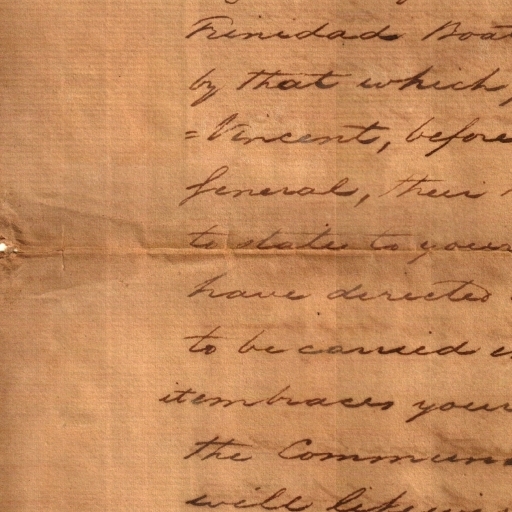 Trinidad Boat
by that which,
=Vincent, before
General, their
to state to your
have directed
to be carried
it embraces your
the Commun
will likewi